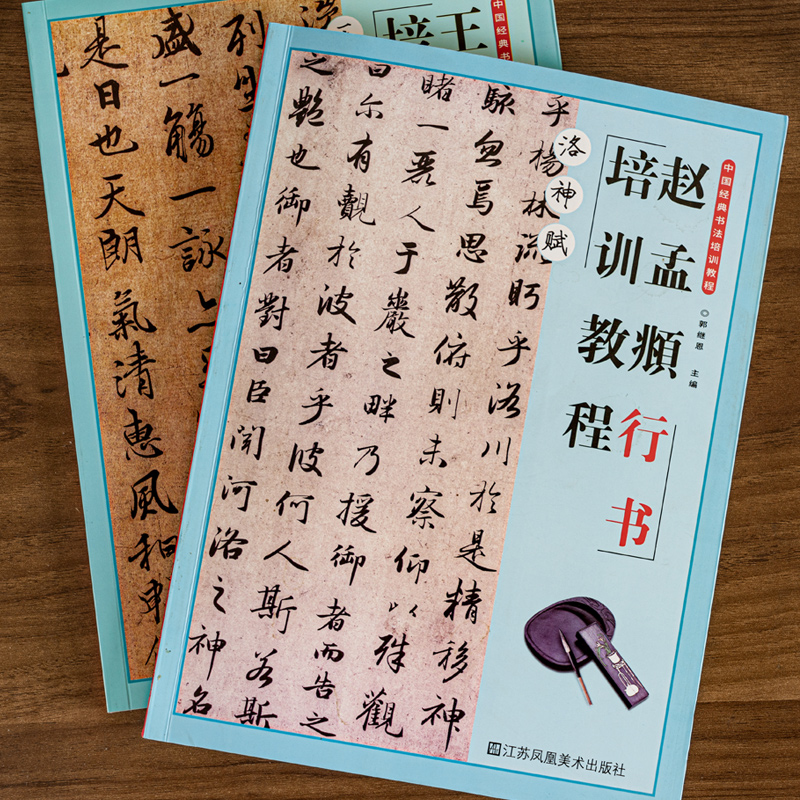 中国经典书法培训教程
赵孟頫行书
培训教程
◎郭继恩 主编
洛神赋
乎楊林流眄乎洛川於是精移神
駭忽焉思散俯則未察仰以殊觀
睹一麗人于巖之畔乃援御者而告之
曰尔有覿於彼者乎彼何人斯若斯
之艷也御者對曰臣聞河洛之神名
江苏凤凰美术出版社
中国经典书
王
培
列
盛一觴一詠
是日也天朗氣清惠風和